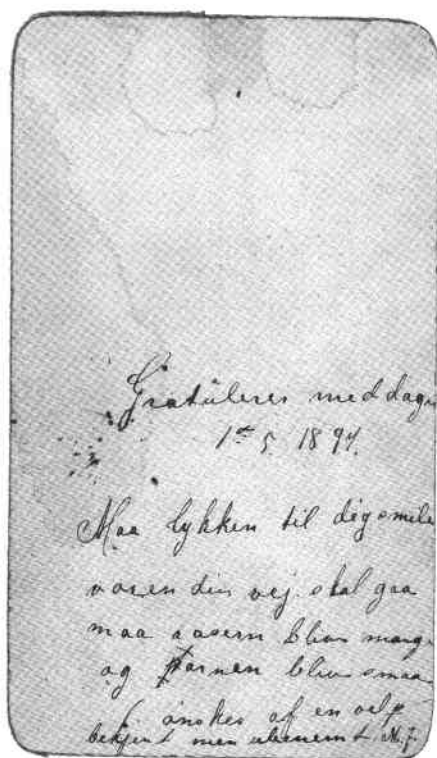 Gratüleres med dagen
1ste 5 1894.
Maa lykken til dig smile
voren din vej skal gaa
maa roserne blive mange
og tornen blive smaa
ønskes af en velp
bekjent men ubenævnt. N. J.